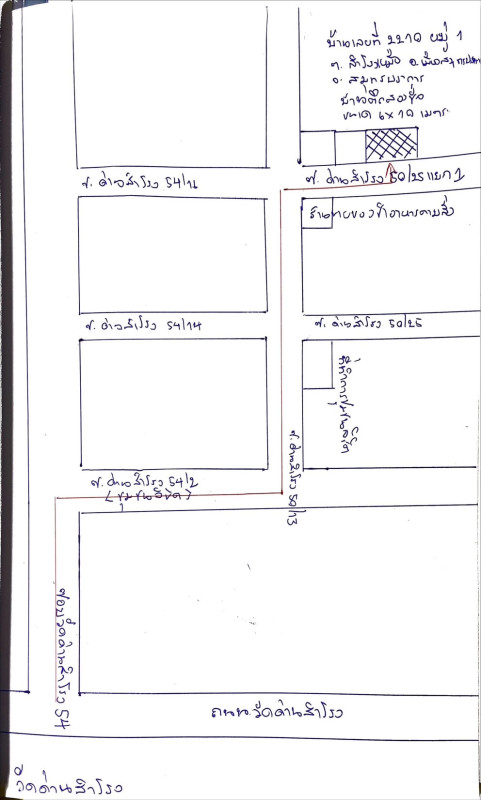 บ้านเลขที่ 2210 หมู่ 1
ต. สำโรงเหนือ อ. เมืองสมุทรปราการ
จ. สมุทรปราการ
บ้านตึกสองชั้น
ขนาด 6 x 10 เมตร
ซ. ด่านสำโรง 54/12
ซ. ด่านสำโรง 50/25 แยก 1
ร้านขายของชำอาหารตามสั่ง
ซ. ด่านสำโรง 54/14
ซ. ด่านสำโรง 50/25
ซ. ด่านสำโรง 50/13
ซ. ด่านสำโรง 54/2
ซอยวัดด่านสำโรง 54
ถนนวัดด่านสำโรง
วัดด่านสำโรง